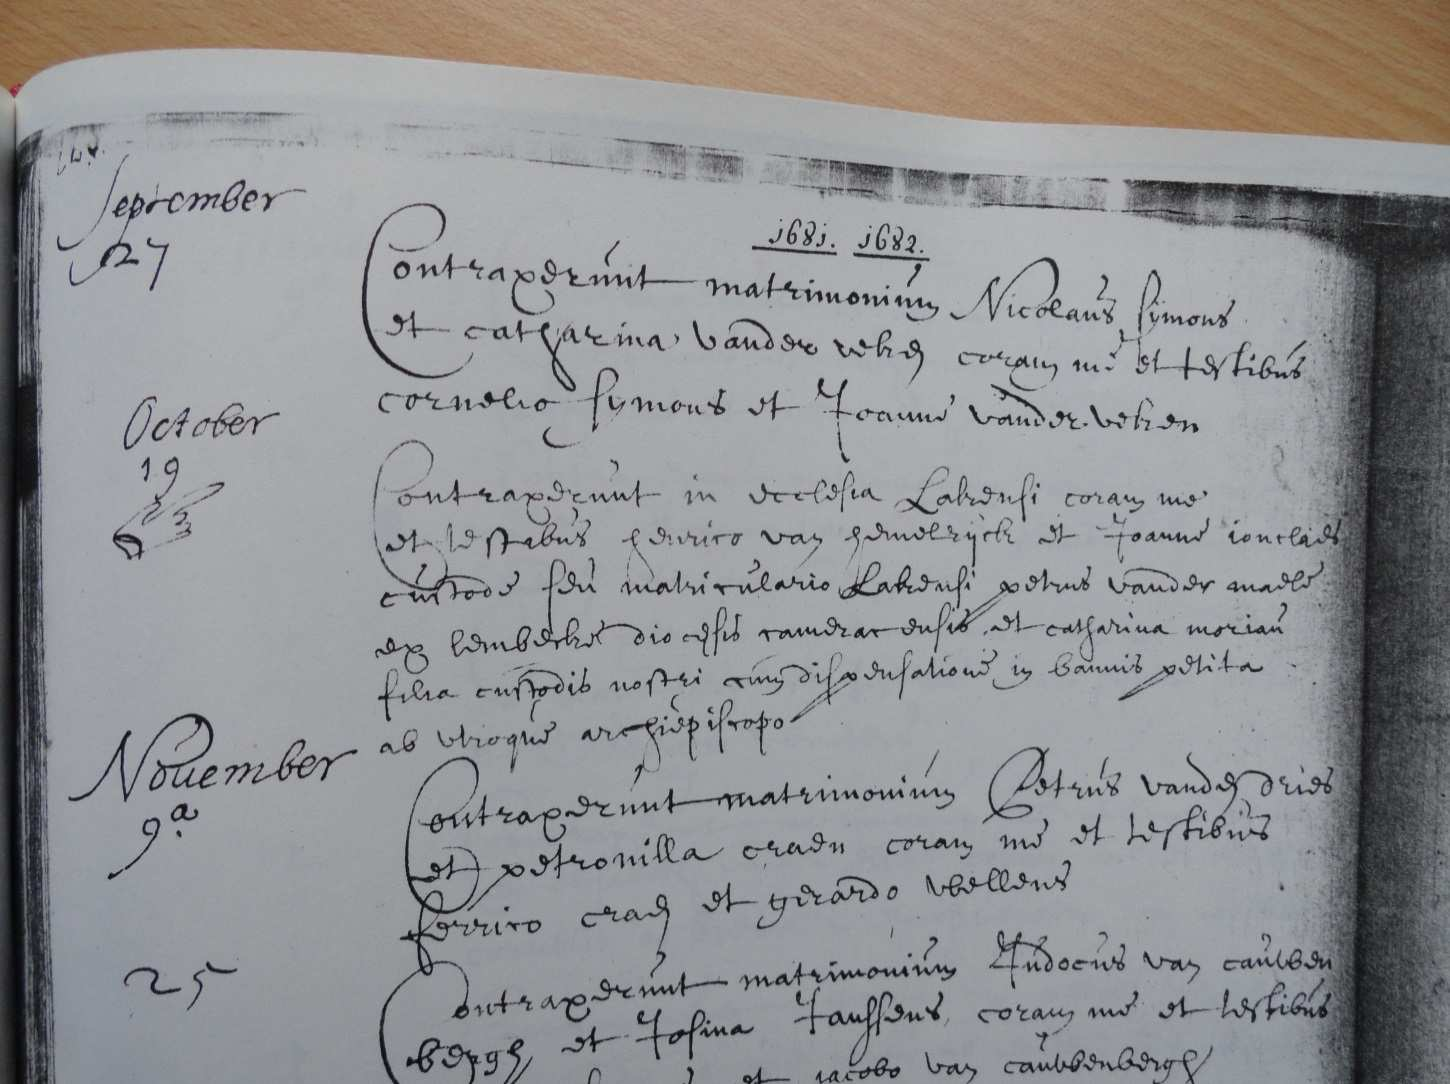 September
27
1681. 1682.
Contraxerunt matrimonium Nicolaus Symons
et catharina vander veken coram me et testibus
cornelio Symons et Joanne vander veken
October
19
Contraxerunt in ecclesia Lakensi coram me
et testibus henrico van hemelrijck et Joanne ionclaes
custode seu matriculario Lakensi petrus vander maele
ex lembecke diocesis cameracensis et catharina moriau
filia custodis nostri cum dispensatione in bannis petita
ab utroque archiepiscopo
November
9a
Contraxerunt matrimonium Petrus vanden dries
et petronilla craen coram me et testibus
ferrico craen et gerardo wellens
25
Contraxerunt matrimonium Judocus van cauwen
bergh et Josina Janssens coram me et testibus
et jacobo van cauwenbergh